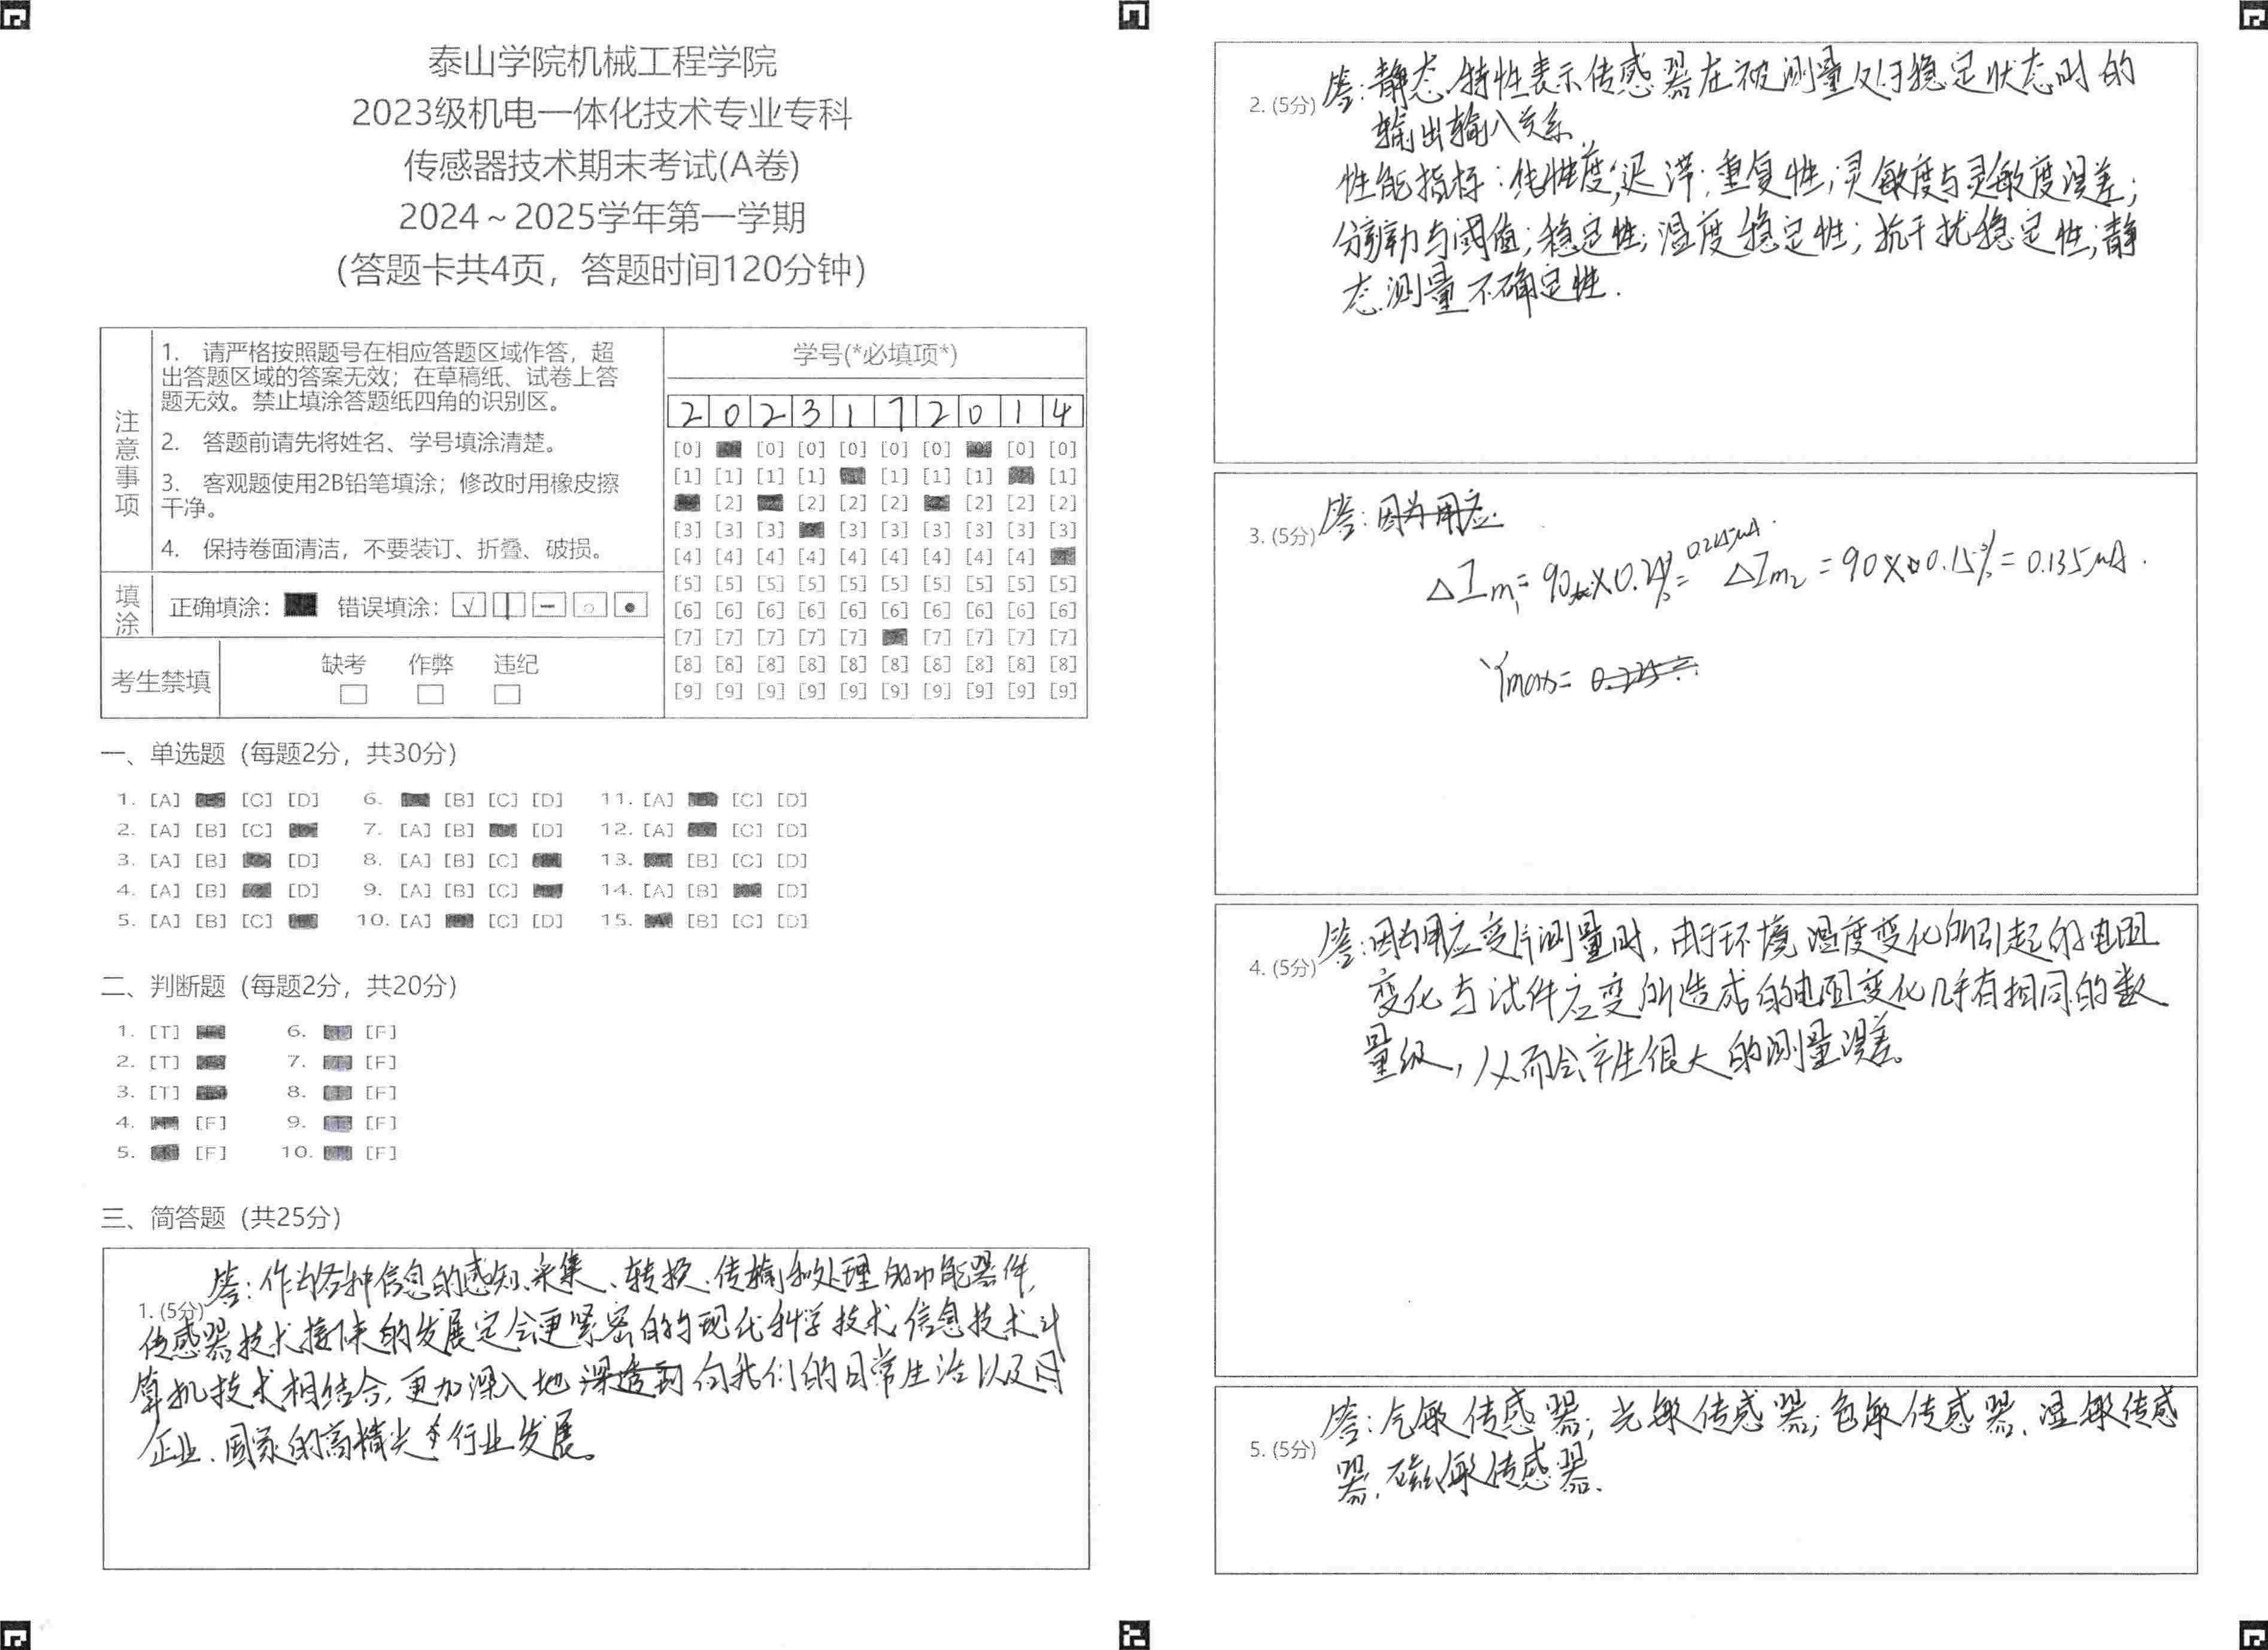 泰山学院机械工程学院
2023级机电一体化技术专业专科
传感器技术期末考试(A卷)
2024～2025学年第一学期
(答题卡共4页，答题时间120分钟)
注意事项
1. 请严格按照题号在相应答题区域作答，超
出答题区域的答案无效；在草稿纸、试卷上答
题无效。禁止填涂答题纸四角的识别区。
2. 答题前请先将姓名、学号填涂清楚。
3. 客观题使用2B铅笔填涂；修改时用橡皮擦
干净。
4. 保持卷面清洁，不要装订、折叠、破损。
填涂
正确填涂： 错误填涂：
考生禁填
缺考 作弊 违纪
学号(*必填项*)
2 0 2 3 1 7 2 0 1 4
[0] [0] [0] [0] [0] [0] [0] [0]
[1] [1] [1] [1] [1] [1] [1] [1]
[2] [2] [2] [2] [2] [2] [2]
[3] [3] [3] [3] [3] [3] [3] [3] [3]
[4] [4] [4] [4] [4] [4] [4] [4] [4]
[5] [5] [5] [5] [5] [5] [5] [5] [5] [5]
[6] [6] [6] [6] [6] [6] [6] [6] [6] [6]
[7] [7] [7] [7] [7] [7] [7] [7] [7]
[8] [8] [8] [8] [8] [8] [8] [8] [8] [8]
[9] [9] [9] [9] [9] [9] [9] [9] [9] [9]
一、单选题 (每题2分，共30分)
1. [A] [C] [D] 6. [B] [C] [D] 11. [A] [C] [D]
2. [A] [B] [C] 7. [A] [B] [D] 12. [A] [C] [D]
3. [A] [B] [D] 8. [A] [B] [C] 13. [B] [C] [D]
4. [A] [B] [D] 9. [A] [B] [C] 14. [A] [B] [D]
5. [A] [B] [C] 10. [A] [C] [D] 15. [B] [C] [D]
二、判断题 (每题2分，共20分)
1. [T] 6. [F]
2. [T] 7. [F]
3. [T] 8. [F]
4. [F] 9. [F]
5. [F] 10. [F]
三、简答题 (共25分)
1. (5分) 答：作为各种信息的感知、采集、转换、传输和处理的功能器件，
传感器技术接下来的发展定会更紧密的与现代科学技术、信息技术、计
算机技术相结合，更加深入地 向我们的日常生活以及
企业、国家的高精尖行业发展。
2. (5分) 答：静态特性表示传感器在被测量处于稳定状态时的
输出输入关系
性能指标：线性度；迟滞；重复性；灵敏度与灵敏度误差；
分辨力与阈值；稳定性；温度稳定性；抗干扰稳定性；静
态测量不确定性.
3. (5分) 答：因为用应
ΔIm₁=90×0.2%= ΔIm₂=90×0.15%=0.135μA.
Ymax=
4. (5分) 答：因为用应变片测量时，由于环境温度变化所引起的电阻
变化与试件应变所造成的电阻变化几乎有相同的数
量级，从而会产生很大的测量误差。
5. (5分) 答：气敏传感器；光敏传感器；色敏传感器、湿敏传感
器、磁敏传感器.